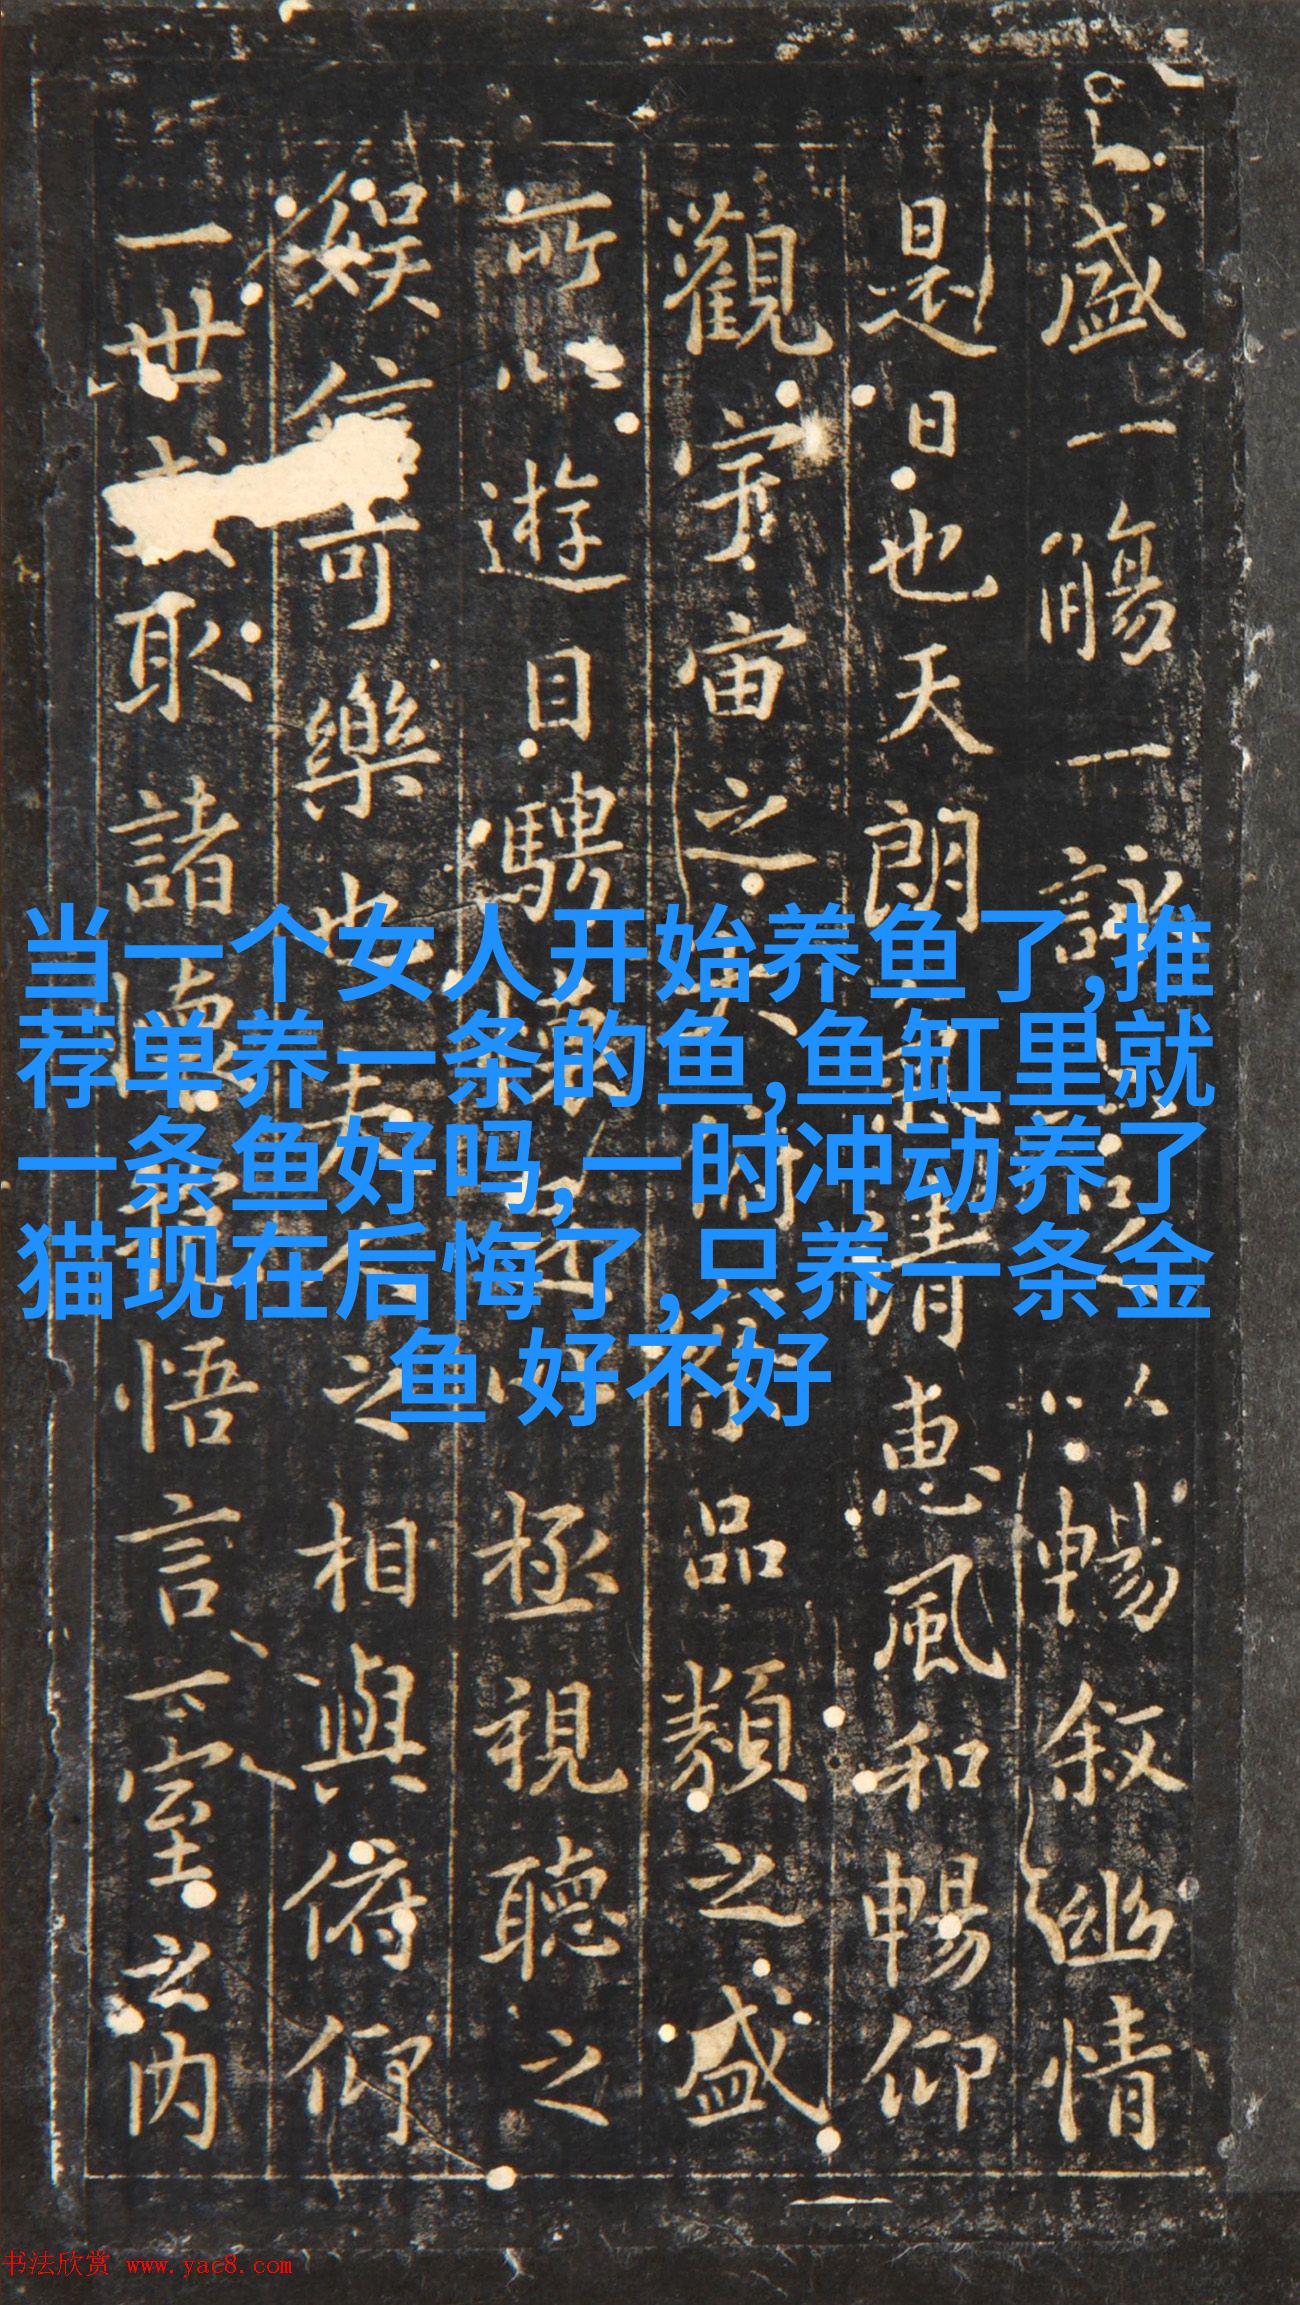 盛一觴一詠以暢叙幽情
是日也天朗清惠風和暢仰
觀宇宙之大品類之盛
所以遊目騁懷極視聽之
娛信可樂也夫之相與俯仰
一世取諸懷悟言一室之内
当一个女人开始养鱼了,推
荐单养一条的鱼,鱼缸里就
一条鱼好吗,一时冲动养了
猫现在后悔了,只养一条金
鱼 好不好
书法欣赏 www.yac8.com